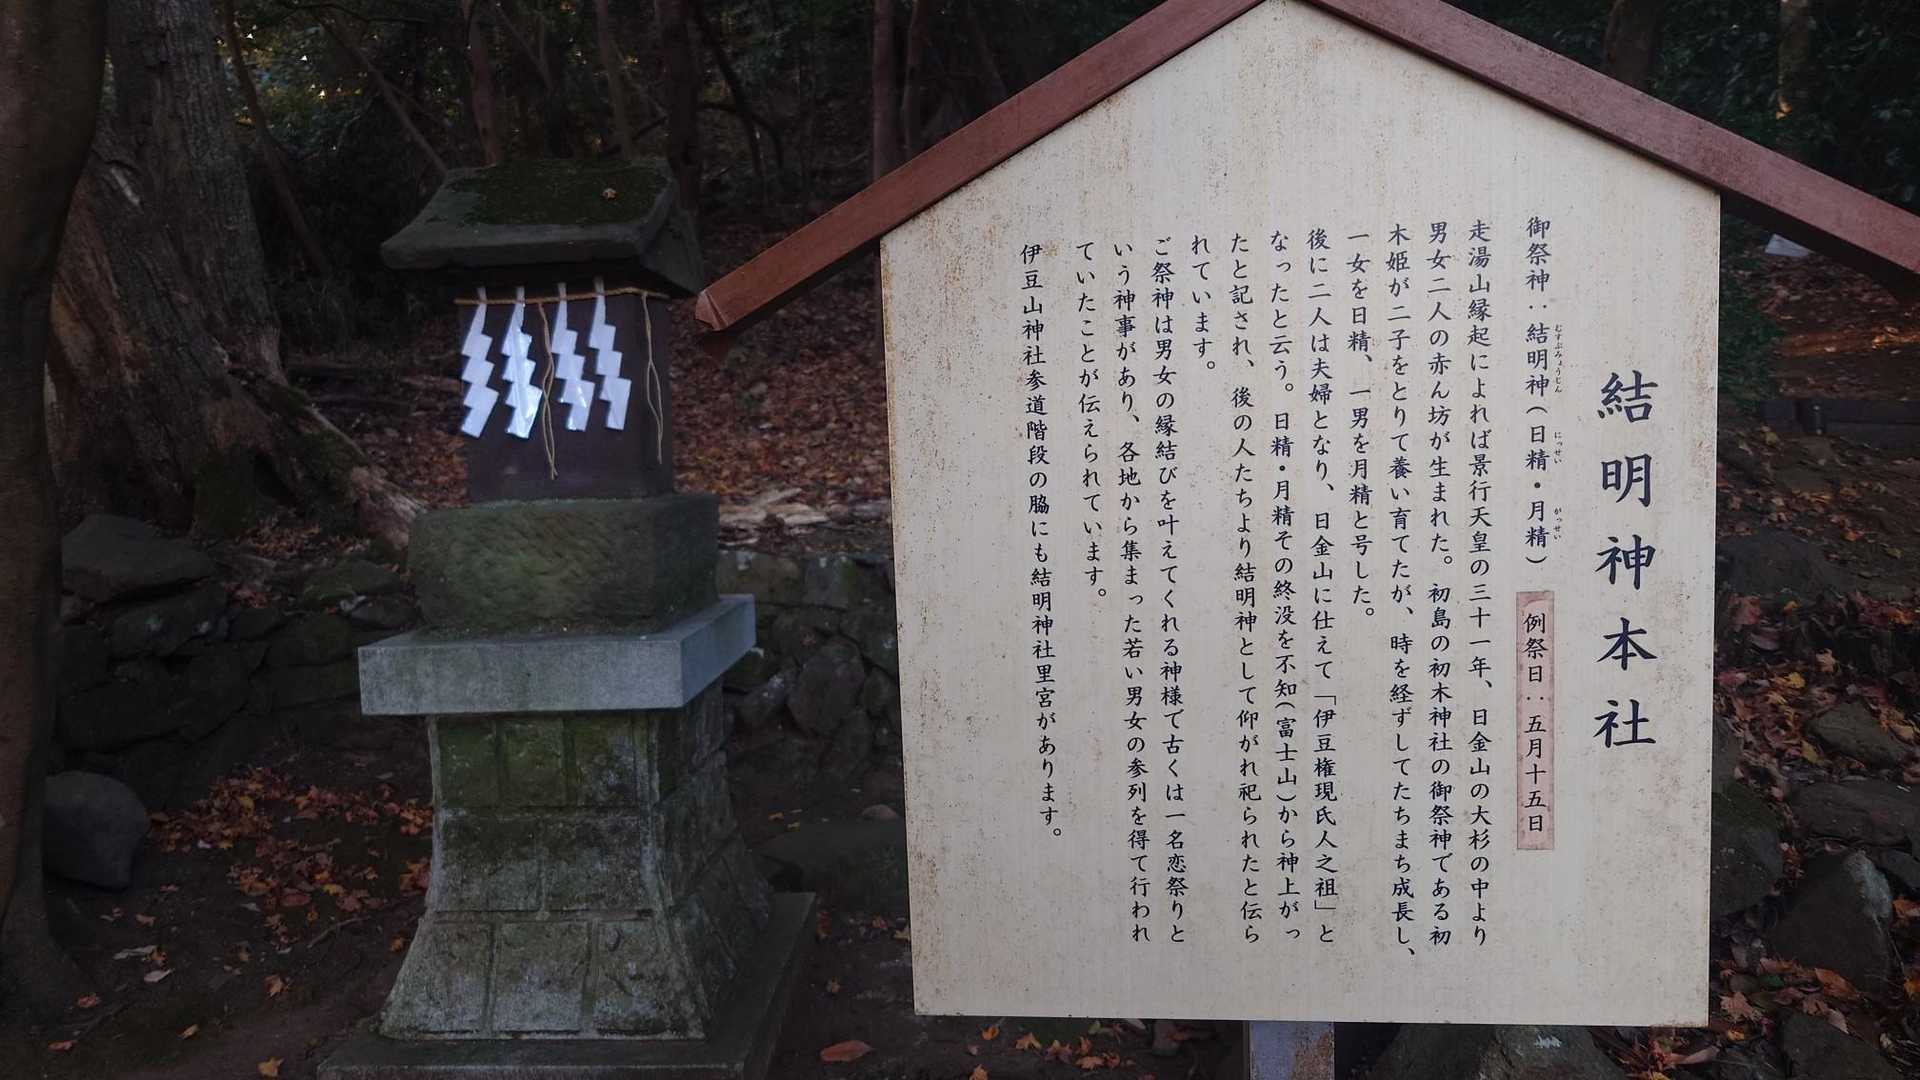 結明神本社
御祭神：結明神（日精・月精）　例祭日：五月十五日
むすぶみょうじん
にっせい
がっせい
走湯山縁起によれば景行天皇の三十一年、日金山の大杉の中より
男女二人の赤ん坊が生まれた。初島の初木神社の御祭神である初
木姫が二子をとりて養い育てたが、時を経ずしてたちまち成長し、
一女を日精、一男を月精と号した。
後に二人は夫婦となり、日金山に仕えて「伊豆権現氏人之祖」と
なったと云う。日精・月精その終没を不知（富士山）から神上がっ
たと記され、後の人たちより結明神として仰がれ祀られたと伝ら
れています。
ご祭神は男女の縁結びを叶えてくれる神様で古くは一名恋祭りと
いう神事があり、各地から集まった若い男女の参列を得て行われ
ていたことが伝えられています。
伊豆山神社参道階段の脇にも結明神社里宮があります。